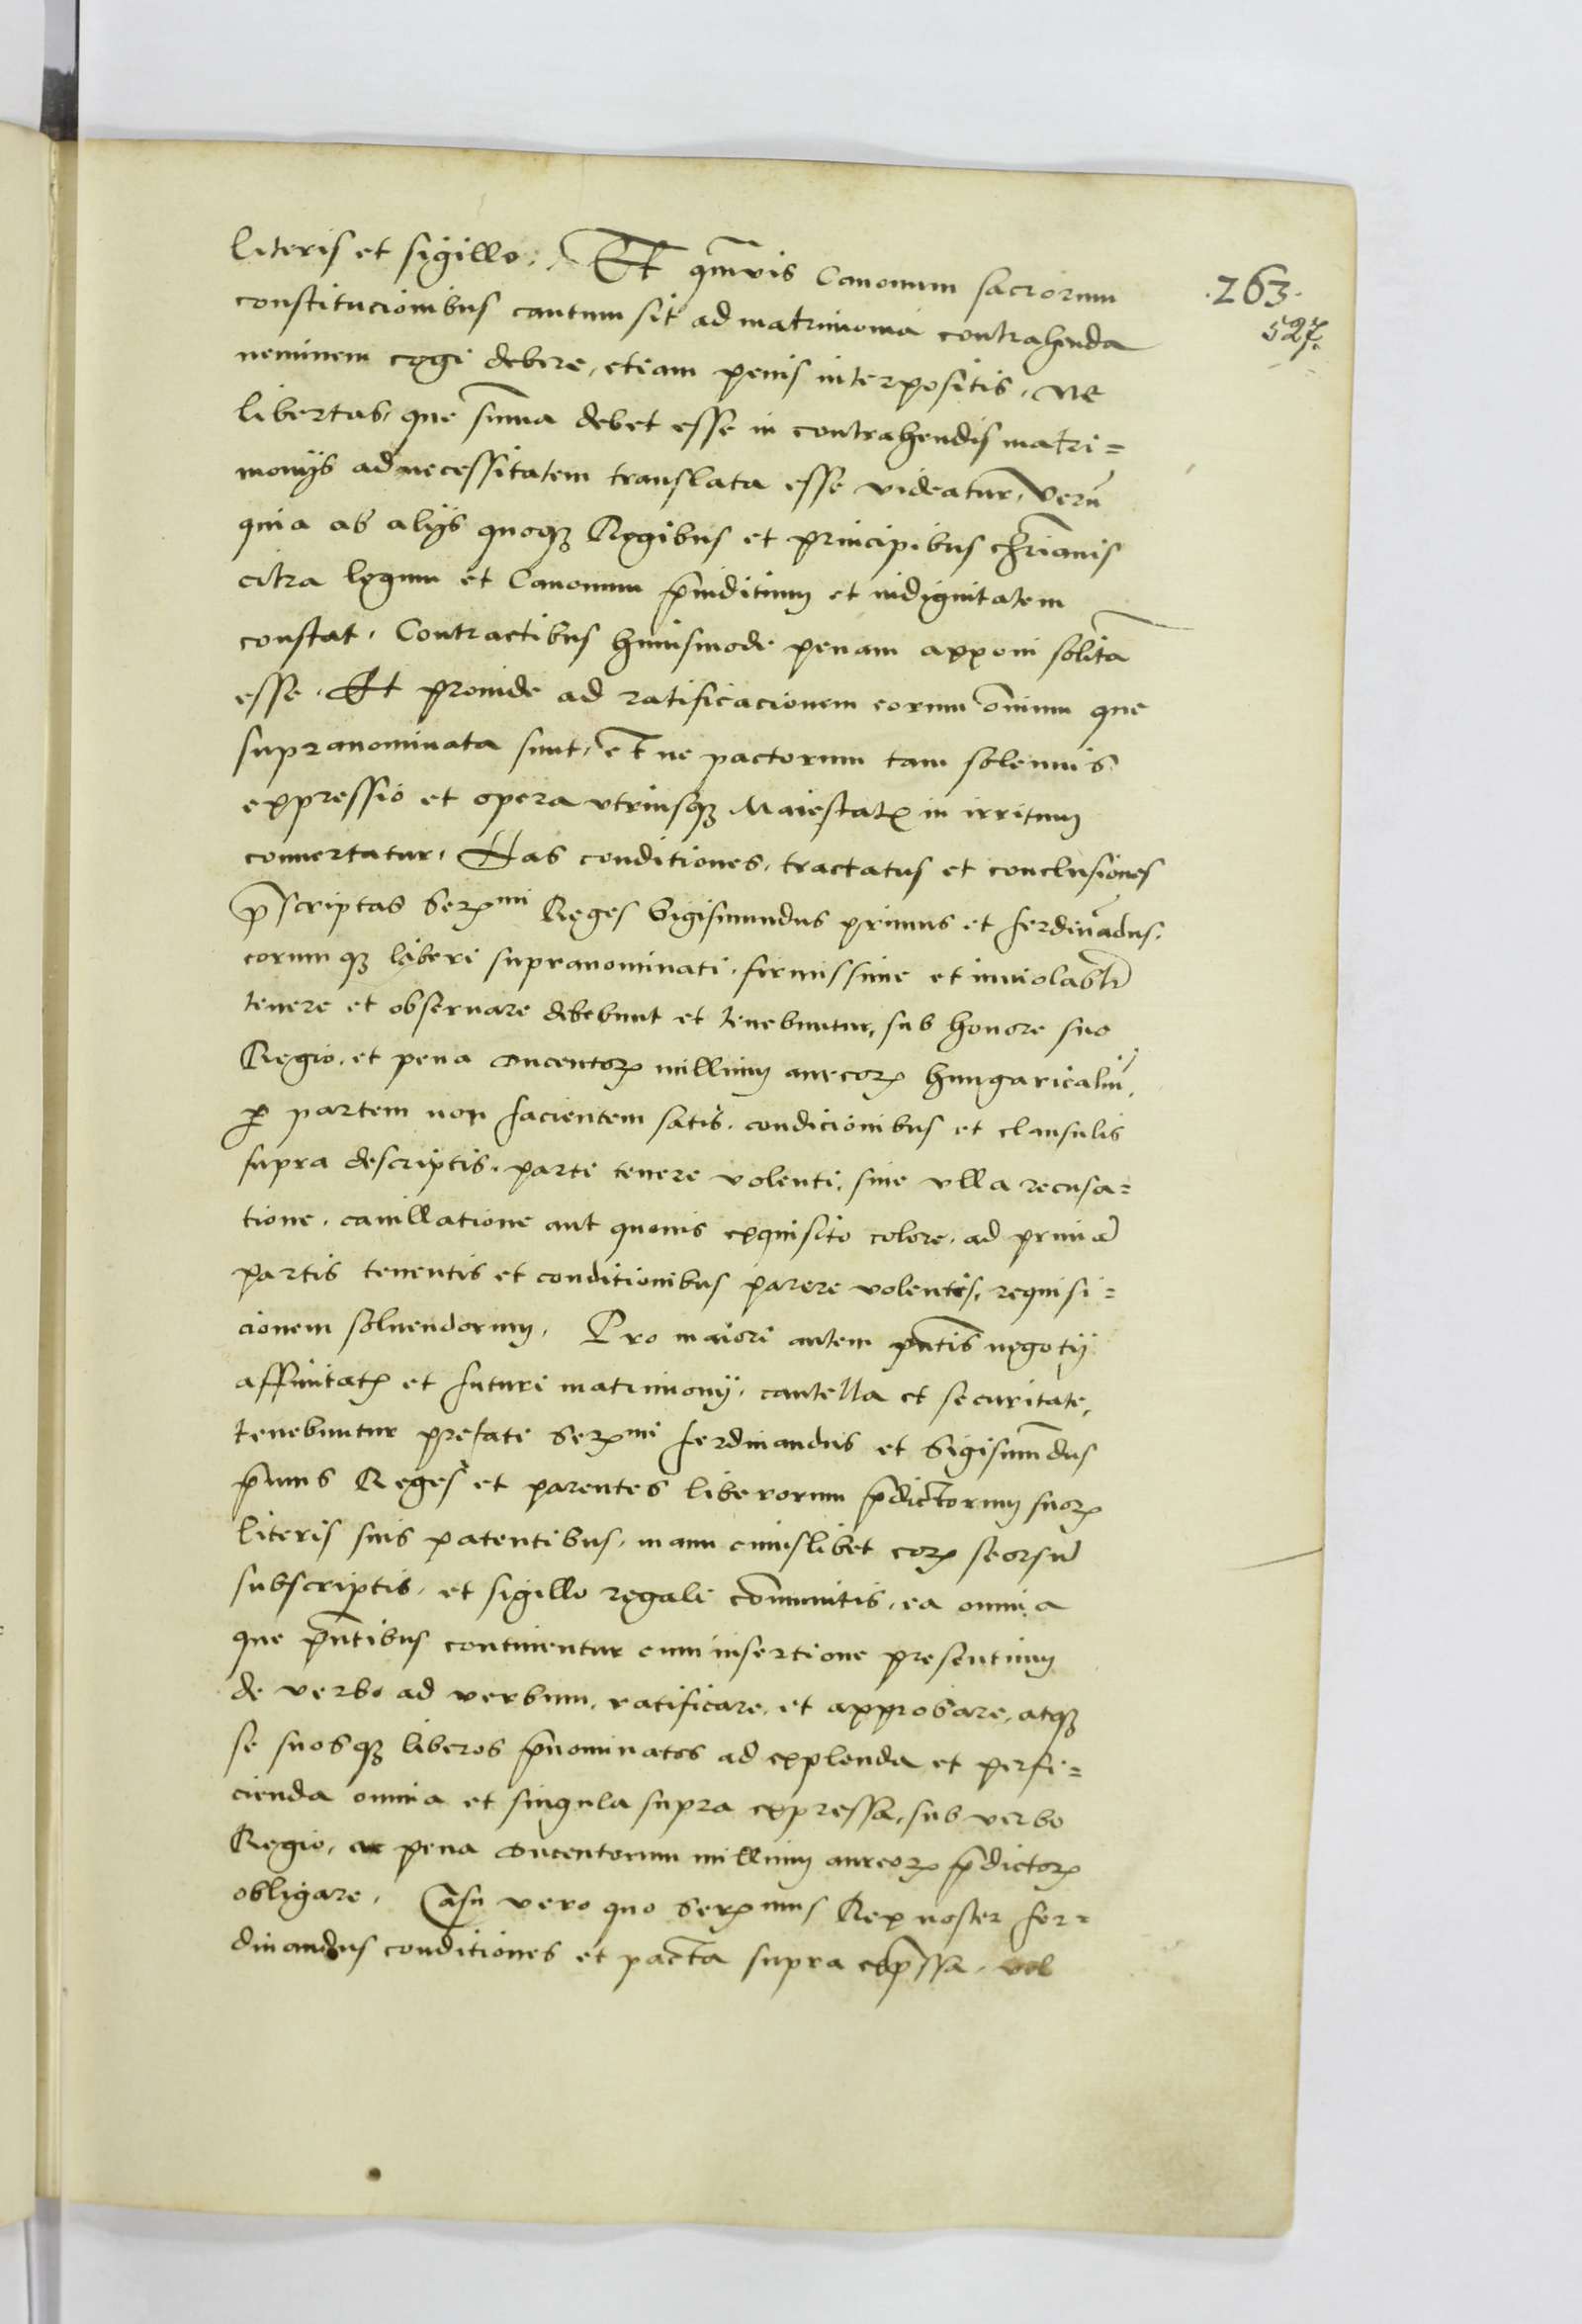 literis et sigillo. Et qm̃vis Canonum sacrorum
constitucionibus cautum sit ad matrimonia contrahenda
neminem cogi debere, etiam penis interpositis, Ne
libertas, que sum̃a debet esse in contrahendis matri=
monijs ad necessitatem translata esse videatur, Verũ
quia ab alijs quoqꝫ Regibus et principibus chrĩanis
citra legum et Canonum p̃iuditium et indignitatem
constat, Contractibus huiusmode penam apponi solitã
esse, Et proinde ad ratificacionem eorum om̃ium que
supranominata sunt, et ne pactorum tam solemnis
expressio et opera vtriusqꝫ Maiestatꝭ in irritum
convertatur, Has conditiones, tractatus et conclusiones
p̃scriptas Serᵐⁱ Reges Sigismundus primus et ferdinãdus,
eorumqꝫ liberi supranominati, firmissime et inviolabl̃r
tenere et observare debebunt et tenebuntur, sub honore suo
Regio, et pena ducentoꝝ millium aureoꝝ hungaricaliũ,
ꝑ partem non facientem satis, condicionibus et clausulis
supra descriptis, parti tenere volenti, sine vlla recusa=
tione, cavillatione aut quovis exquisito colore, ad primã
partis tenentis et conditionibus parere volentis, requisi=
cionem solvendorum, Pro maiori autem pñtis negotij
affinitatꝭ et futuri matrimonij, cautella et securitate,
tenebuntur prefati Serᵐⁱ ferdinandus et Sigismundus
p̃imus Reges et parentes liberorum p̃dictorum suoꝝ
literis suis patentibus, manu cuiuslibet eoꝝ seorsũ
subscriptis, et sigillo regali com̃unitis, ea omnia
que p̃ntibus continentur cum insertione presentium
de verbo ad verbum, ratificare, et approbare, atqꝫ
se suosqꝫ liberos p̃nominatos ad explenda et perfi=
cienda omnia et singula supra expressa, sub verbo
Regio, ac pena ducentorum millium aureoꝝ p̃dictoꝝ
obligare, Casu vero quo Serᵐᵘˢ Rex noster fer=
dinandus conditiones et pacta supra exp̃ssa, vel
.263.
527.